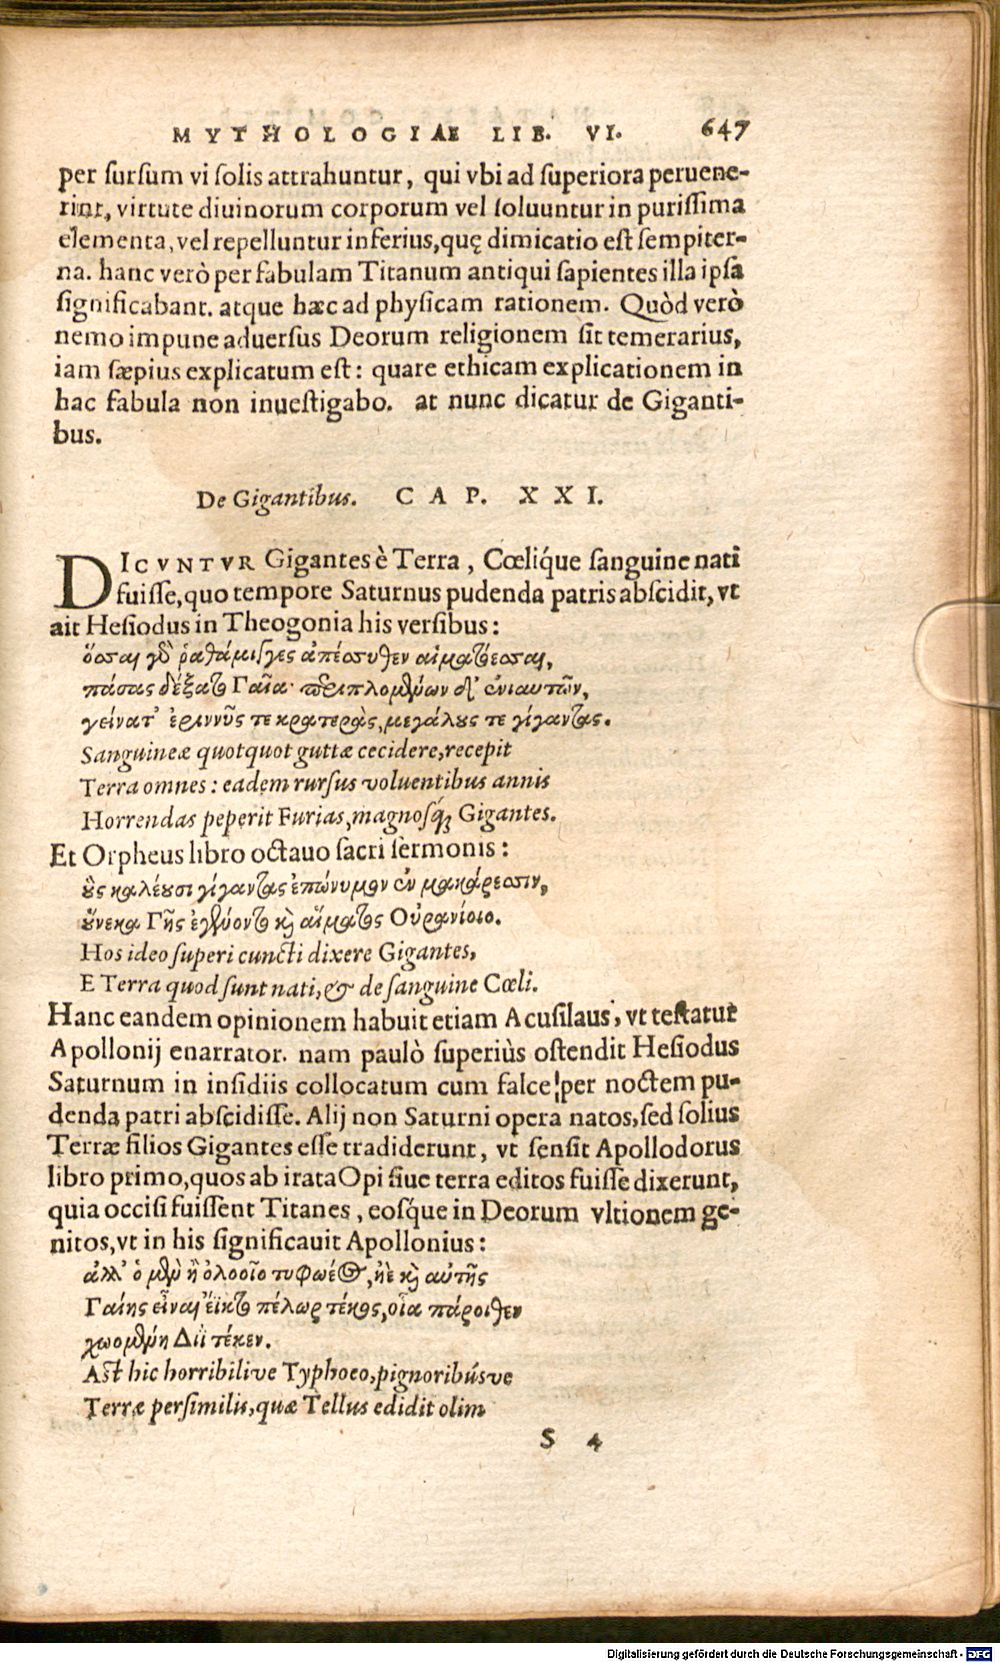 MYTHOLOGIAE LIB. VI. 647
per sursum vi solis attrahuntur, qui vbi ad superiora peruene-
rint, virtute diuinorum corporum vel soluuntur in purissima
elementa, vel repelluntur inferius, quę dimicatio est sempiter-
na. hanc verò per fabulam Titanum antiqui sapientes illa ipsa
significabant. atque hæc ad physicam rationem. Quòd verò
nemo impune aduersus Deorum religionem sit temerarius,
iam sæpius explicatum est: quare ethicam explicationem in
hac fabula non inuestigabo. at nunc dicatur de Giganti-
bus.
De Gigantibus. CAP. XXI.
DICVNTVR Gigantes è Terra, Cœliq́ue sanguine nati
fuisse, quo tempore Saturnus pudenda patris abscidit, vt
ait Hesiodus in Theogonia his versibus:
ὅσσαι γδ̃ ῥαθάμιγγες ἀπέσσυθεν αἱματόεσσαι,
πάσας δέξατο Γαῖα· περιπλομένων δ' ἐνιαυτῶν,
γείνατ' ἐριννῦς τε κρατερὰς, μεγάλους τε γίγαντας.
Sanguineæ quotquot guttæ cecidere, recepit
Terra omnes: eadem rursus voluentibus annis
Horrendas peperit Furias, magnosq́; Gigantes.
Et Orpheus libro octauo sacri sermonis:
οὓς καλέουσι γίγαντας ἐπώνυμον ἐν μακάρεσσιν,
οὕνεκα Γῆς ἐγένοντο καὶ αἵματος Οὐρανίοιο.
Hos ideo superi cuncti dixere Gigantes,
E Terra quod sunt nati, & de sanguine Cœli.
Hanc eandem opinionem habuit etiam Acusilaus, vt testatur
Apollonij enarrator. nam paulò superiùs ostendit Hesiodus
Saturnum in insidiis collocatum cum falce per noctem pu-
denda patri abscidisse. Alij non Saturni opera natos, sed solius
Terræ filios Gigantes esse tradiderunt, vt sensit Apollodorus
libro primo, quos ab irata Opi siue terra editos fuisse dixerunt,
quia occisi fuissent Titanes, eosq́ue in Deorum vltionem ge-
nitos, vt in his significauit Apollonius:
ἀλλ' ὁ μὲν ἢ ὀλοοῖο τυφωέος, ἠὲ καὶ αὐτῆς
Γαίης εἶναι ἔϊκτο πέλωρ τέκος, οἷα πάροιθεν
χωομένη Διῒ τέκεν.
Ast hic horribilive Typhoeo, pignoribúsve
Terræ persimilis, quæ Tellus edidit olim
S 4
Digitalisierung gefördert durch die Deutsche Forschungsgemeinschaft - DFG